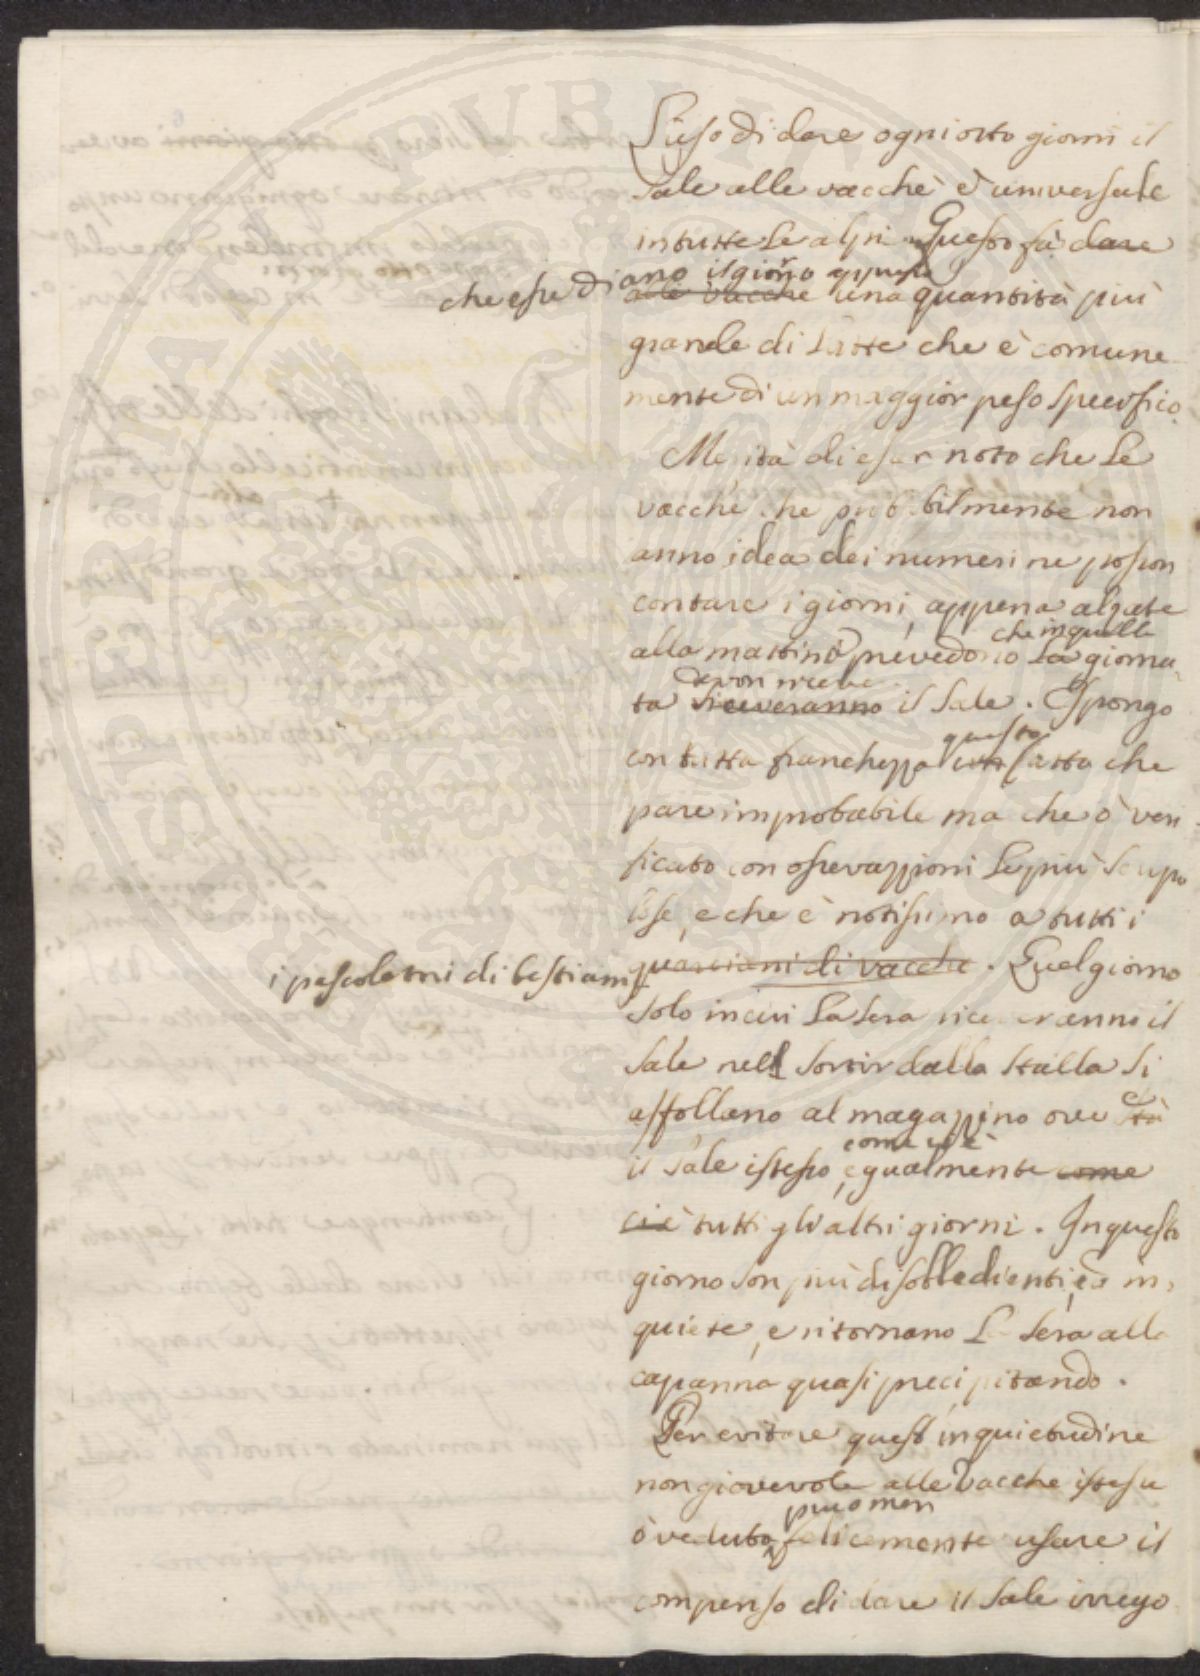 L'uso di dare ogni otto giorni il
sale alle vacche è universale
in tutte le alpi. Questo fà dare
che esse diano il giorno appresso
alle vacche una quantità più
grande di latte che è comune
mente di un maggior peso specifico.
Merità di esser noto che le
vacche che probabilmente non
anno idea dei numeri ne posson
contare i giorni, appena alzate
che in quella
alla mattina prevedono la giorna
devon ricever
ta riceveranno il sale. Espongo
questo
con tutta franchezza un fatto che
pare improbabile ma che ò veri
ficato con osservazzioni le più scrupo
lose, e che è notissimo a tutti i
i pascolatori di bestiami
guardiani di vacche. Quel giorno
solo in cui la sera riceveranno il
sale nell sortir dalla stalla si
affollano al magazzino ove stà
è
come vi è
il sale istesso, egualmente come
ciè tutti gli altri giorni. In questo
giorno son più disobbedienti, e in,
quiete, e ritornano la sera alla
capanna quasi precipitando.
Per evitare quest inquietudine
non giovevole alle vacche istesse
più o men
ò veduto felicemente usare il
compenso di dare il sale irrego